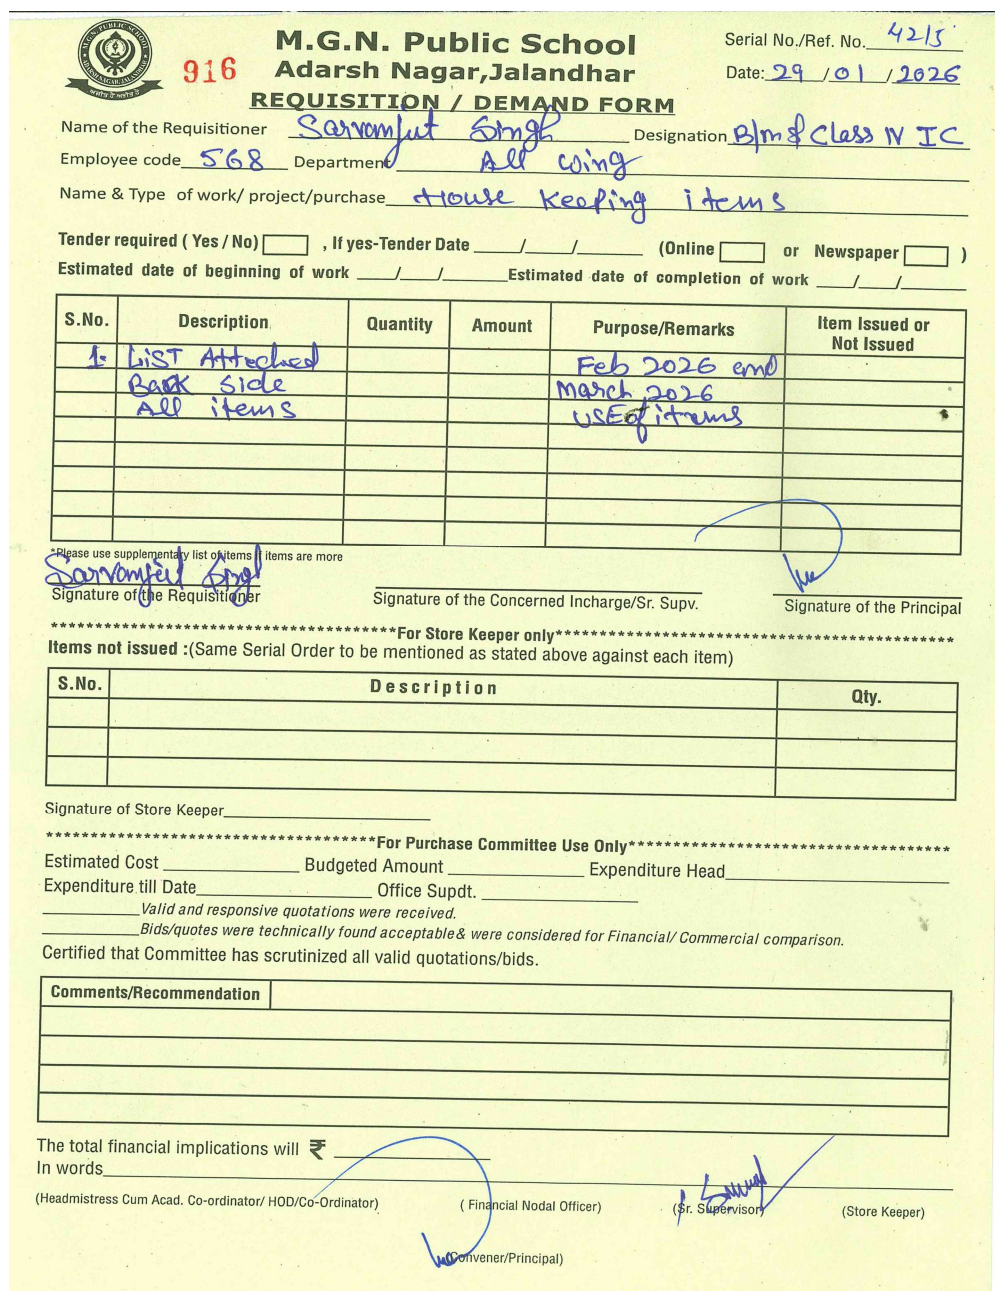 M.G.N. PUBLIC SCHOOL
ADARSH NAGAR, JALANDHAR
916
M.G.N. Public School
Adarsh Nagar,Jalandhar
REQUISITION / DEMAND FORM
Serial No./Ref. No. 4215
Date: 29 / 01 / 2026
Name of the Requisitioner Sarvamjut Singh Designation B/m & Class IV IC
Employee code 568 Department All wing
Name & Type of work/ project/purchase House Keeping items
Tender required ( Yes / No) , If yes-Tender Date ____/____/______ (Online or Newspaper )
Estimated date of beginning of work ____/____/______ Estimated date of completion of work ____/____/______
S.No. Description Quantity Amount Purpose/Remarks Item Issued or Not Issued
1. LiST Attached Feb 2026 and
Back Side March 2026
All items USE of items
*Please use supplementary list of items if items are more
Sarvamjit Singh
Signature of the Requisitioner Signature of the Concerned Incharge/Sr. Supv. Signature of the Principal
****************************************For Store Keeper only**********************************************
Items not issued :(Same Serial Order to be mentioned as stated above against each item)
S.No. Description Qty.
Signature of Store Keeper
**************************************For Purchase Committee Use Only*************************************
Estimated Cost Budgeted Amount Expenditure Head
Expenditure till Date Office Supdt.
Valid and responsive quotations were received.
Bids/quotes were technically found acceptable& were considered for Financial/ Commercial comparison.
Certified that Committee has scrutinized all valid quotations/bids.
Comments/Recommendation
The total financial implications will ₹
In words
(Headmistress Cum Acad. Co-ordinator/ HOD/Co-Ordinator) ( Financial Nodal Officer) (Sr. Supervisor) (Store Keeper)
(Convener/Principal)